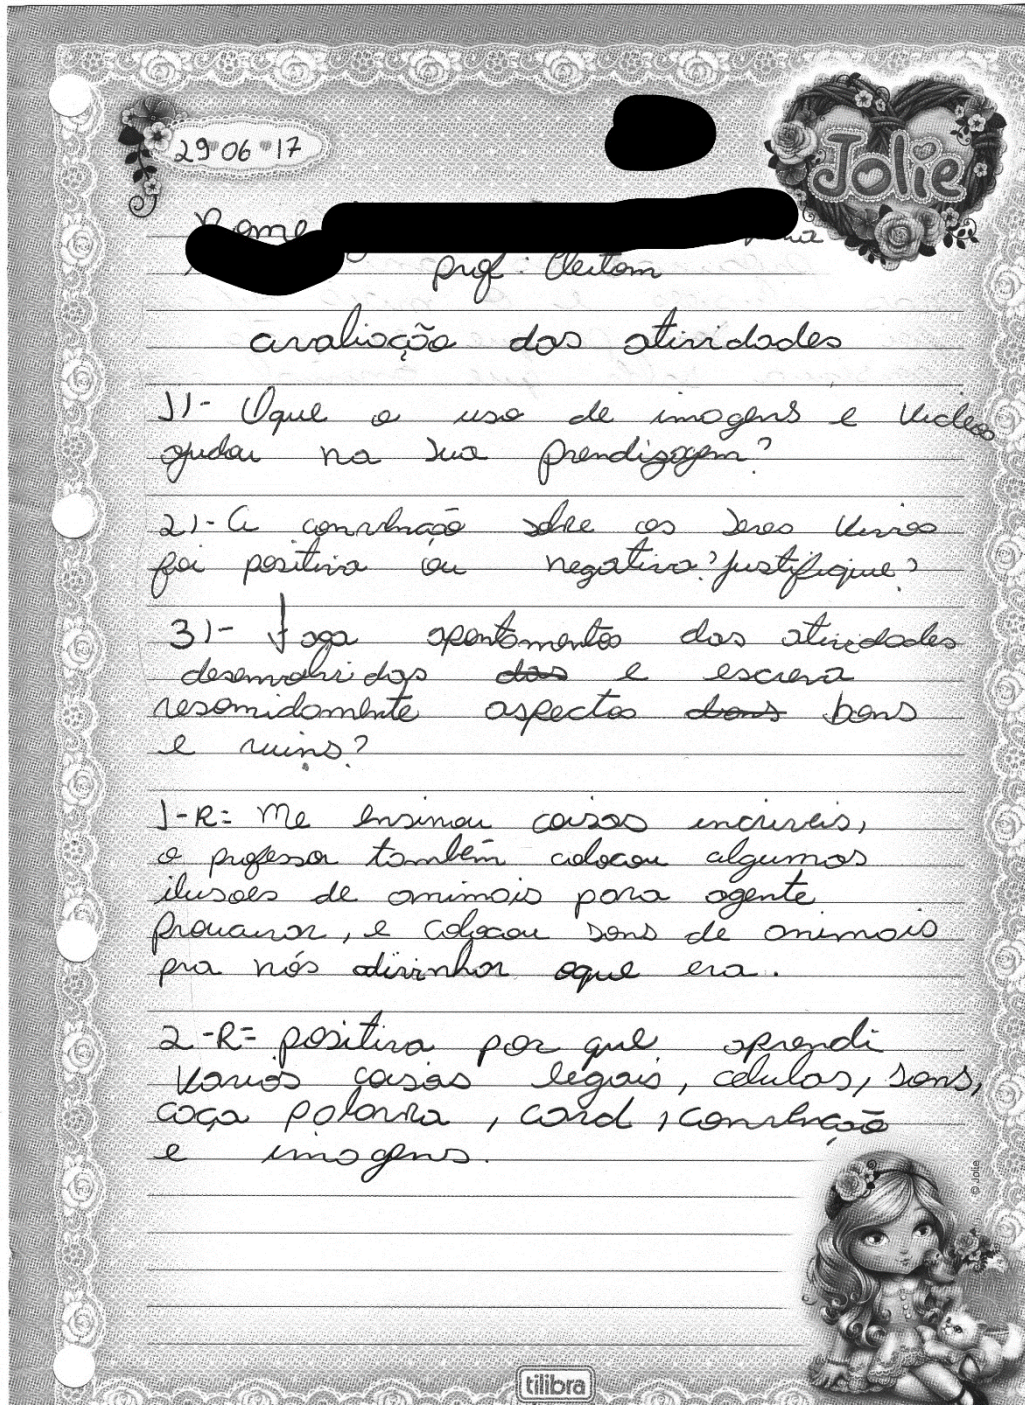 29 06 17
Jolie
Nome
prof: Cleitom
avaliação das atividades
1)- Oque o uso de imagens e videos
ajudou na sua prendizagem?
2)- A convernção sobre os seres vivos
foi positiva ou negativa? justifique?
3)- Faça apontamentos das atividades
desenvolvidas das e escreva
resomidamente aspectos dons bons
e ruins?
1-R= Me ensinou coisas incriveis,
o professor também colocou algumas
ilusoes de animais para agente
procurar, e colocou sons de animais
pra nós adivinhar oque era.
2-R= positiva por que aprendi
varios coisas legais, celulas, sons,
caça palavra, card,
e imagens.
© Jolie
tilibra